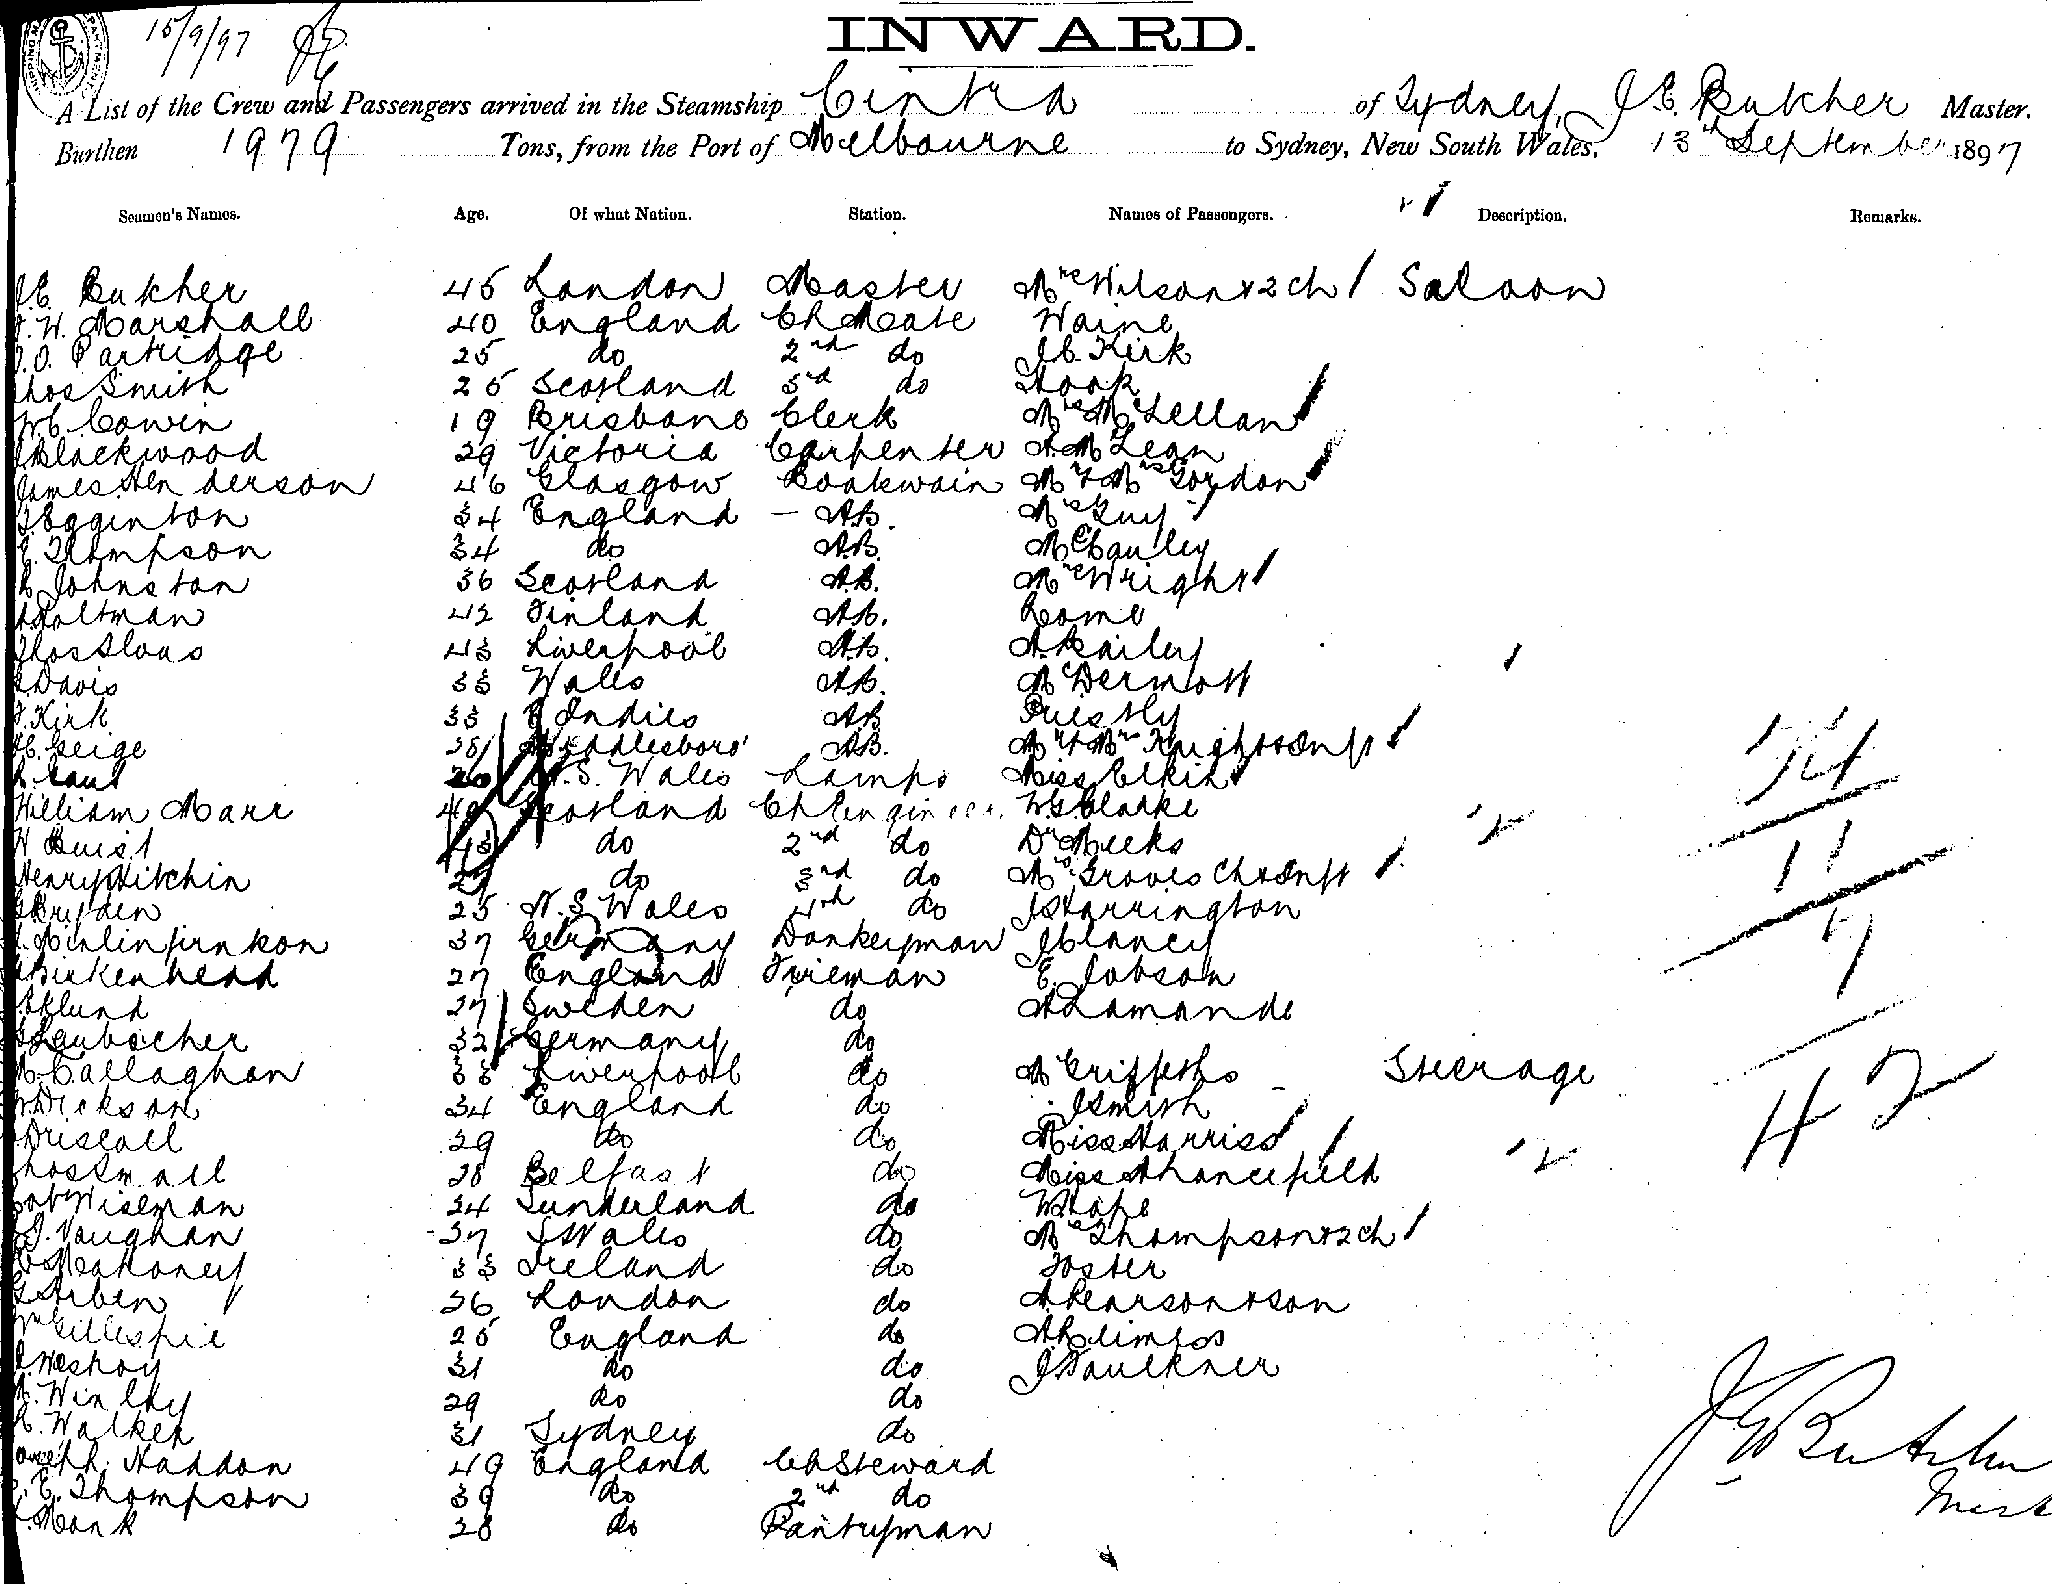 15/9/97
INWARD.
A List of the Crew and Passengers arrived in the Steamship Cintra of Sydney, J E Butcher Master.
Burthen 1979 Tons, from the Port of Melbourne to Sydney, New South Wales, 13th September 1897
Seamen's Names. Age. Of what Nation. Station. Names of Passengers. Description. Remarks.
J.E. Butcher 45 London Master Mrs Wilson & 2 ch Saloon
W. Marshall 40 England Ch Mate Waine
O. Partridge 25 do 2nd do J C Kirk
Thos Smith 25 Scotland 3rd do Hook
W C Cowin 19 Brisbane Clerk Mrs McLellan
J Blackwood 29 Victoria Carpenter A McLean
James Henderson 46 Glasgow Boatswain Mr & Mrs Gordon
Egginton 34 England AB. Mrs Guy
Thompson 34 do AB. McCauley
Johnston 36 Scotland AB. Mrs Wright
Holtman 42 Finland AB. Lome
Thos Sloas 43 Liverpool AB. A. Bailey
Davis 33 Wales AB. McDermott
Kirk 33 Indies AB Priestly
Geige 28 Middlesboro' AB. Mr & Mrs Knight & Inft
N.S. Wales Lamps Miss Elkin
William Marr Scotland Ch Engineer. W G Clarke
W Buist 43 do 2nd do Dr Meeks
Henry Hitchin 29 do 3rd do Mrs Groves Ch & Inft
Bryden 25 N.S Wales 4th do J Harrington
37 Germany Donkeyman J Clancy
Birkenhead 27 England Fireman E. Jobson
Eklund 27 Sweden do A Lamande
Laubscher 32 Germany do
Callaghan 33 Liverpool do McGriffiths Steerage
W Dickson 34 England do J Smith
Driscoll 29 do do Miss Harriss
Thos Small 28 Belfast do Miss Shancefield
Robt Wiseman 24 Sunderland do W Hope
J. Vaughan 37 S Wales do Mrs Thompson & 2 ch
Mahoney 33 Ireland do Foster
26 London do A. Pearson & son
Wm Gillespie 25 England do
31 do do J Faulkner
Winlay 29 do do
Walker 31 Sydney do
Joseph Haddon 49 England Ch Steward
E. Thompson 39 do 2nd do
Monk 28 do Pantryman
11
7
42
J E Butcher